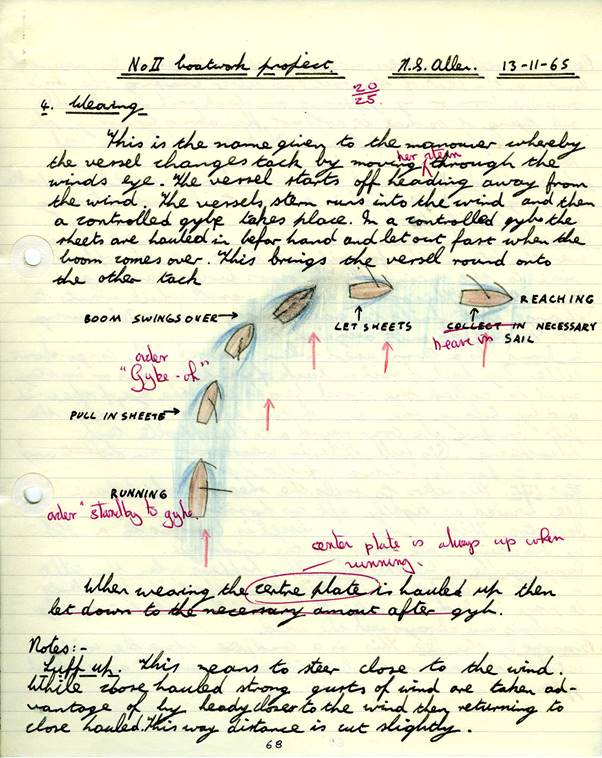 No II boatwork project. N.S. Allen. 13-11-65
20
25.
4. Wearing
This is the name given to the manouver whereby
the vessel changes tack by moving her stern through the
winds eye. The vessel starts off heading away from
the wind. The vessels, stern runs into the wind and then
a controlled gybe takes place. In a controlled gybe the
sheets are hauled in befor hand and let out fast when the
boom comes over. This brings the vessel round onto
the other tack
REACHING
BOOM SWINGS OVER
LET SHEETS
COLLECT IN NECESSARY
heave in SAIL
order
"Gybe-oh"
PULL IN SHEETS
RUNNING
order "standby to gybe.
center plate is always up when
running.
When wearing the centre plate is hauled up then
let down to the necessary amount after gyb.
Notes:-
Luff up. This means to steer close to the wind.
While close hauled strong gusts of wind are taken ad-
vantage of by heady closer to the wind then returning to
close hauled. This way distance is cut slightly.
68